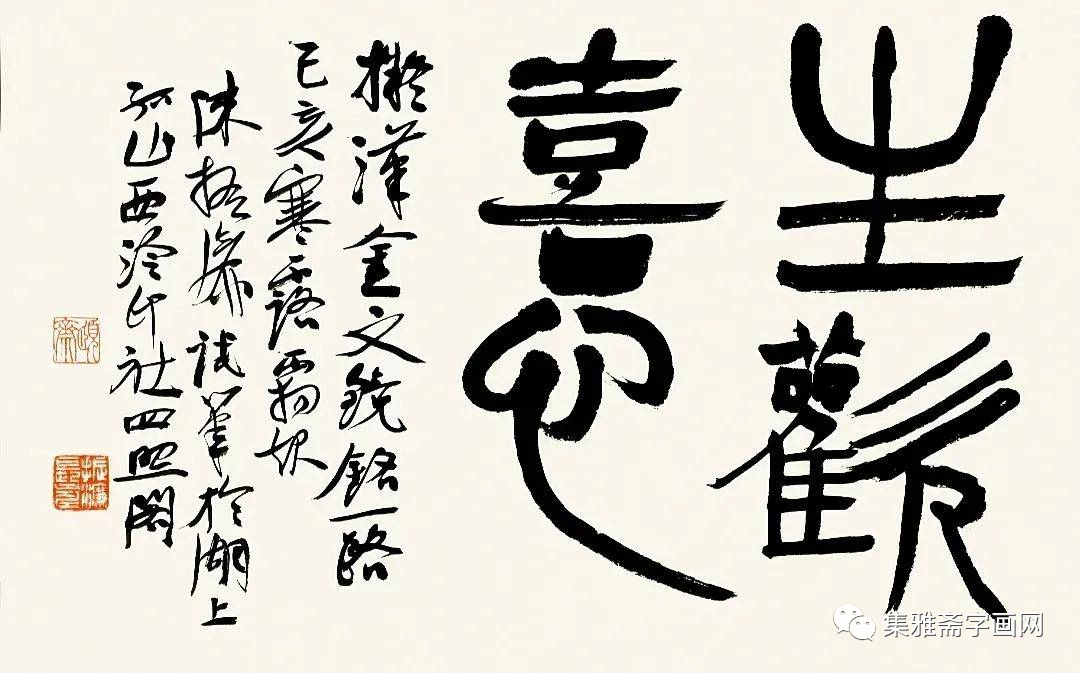 生歡
喜心
擬漢金文鏡銘一路
己亥寒露
陳振濂試筆於湖上
孤山西泠印社四照閣
集雅斋字画网